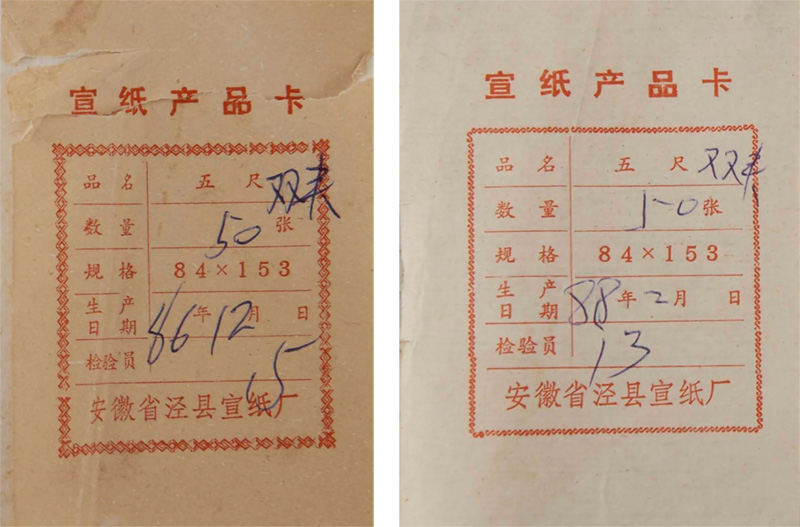 宣纸产品卡
品名 五尺 双夹
数量 50张
规格 84×153
生产日期 86年12月 日
检验员 15
安徽省泾县宣纸厂
宣纸产品卡
品名 五尺 双夹
数量 50张
规格 84×153
生产日期 88年二月 日
检验员 13
安徽省泾县宣纸厂